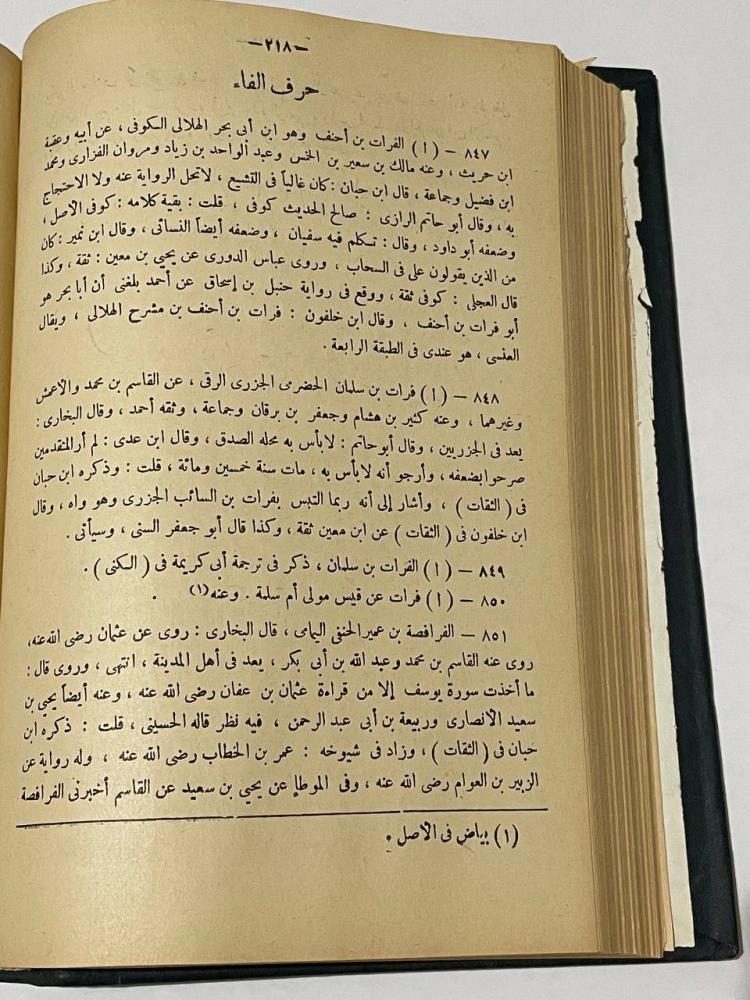 —٢١٨—
حرف الفاء
٨٤٧ — (ا) الفرات بن أحنف وهو ابن أبى بحر الهلالى الكوفى ، عن أبيه وعقبة
ابن حريث ، وعنه مالك بن سعير بن الخمس وعبد الواحد بن زياد ومروان الفزارى ومحمد
ابن فضيل وجماعة ، قال ابن حبان : كان غالياً فى التشيع ، لاتحل الرواية عنه ولا الاحتجاج
به ، وقال أبو حاتم الرازى : صالح الحديث كوفى ، قلت : بقية كلامه : كوفى الأصل ،
وضعفه أبو داود ، وقال : تسكلم فيه سفيان ، وضعفه أيضاً النسائى ، وقال ابن نمير : كان
من الذين يقولون على فى السحاب ، وروى عباس الدورى عن يحيى بن معين : ثقة ، وكذا
قال العجلى : كوفى ثقة ، ووقع فى رواية حنبل بن إسحاق عن أحمد بلغنى أن أبا بحر هو
أبو فرات بن أحنف ، وقال ابن خلفون : فرات بن أحنف بن مشرح الهلالى ، ويقال
العنسى ، هو عندى فى الطبقة الرابعة .
٨٤٨ — (ا) فرات بن سلمان الحضرمى الجزرى الرقى ، عن القاسم بن محمد والأعمش
وغيرهما ، وعنه كثير بن هشام وجعفر بن برقان وجماعة ، وثقه أحمد ، وقال البخارى :
يعد فى الجزريين ، وقال أبوحاتم : لابأس به محله الصدق ، وقال ابن عدى : لم أر المتقدمين
صرحوا بضعفه ، وأرجو أنه لابأس به ، مات سنة خمسين ومائة ، قلت : وذكره ابن حبان
فى (الثقات) ، وأشار إلى أنه ربما التبس بفرات بن السائب الجزرى وهو واه ، وقال
ابن خلفون فى (الثقات) عن ابن معين ثقة ، وكذا قال أبو جعفر السنى ، وسيأتى .
٨٤٩ — (ا) الفرات بن سلمان ، ذكر فى ترجمة أبى كريمة فى (الكنى) .
٨٥٠ — (ا) فرات عن قيس مولى أم سلمة . وعنه (١) .
٨٥١ — الفرافصة بن عمير الحنفى اليمامى ، قال البخارى : روى عن عثمان رضى الله عنه،
روى عنه القاسم بن محمد وعبد الله بن أبى بكر ، يعد فى أهل المدينة ، انتهى ، وروى قال :
ما أخذت سورة يوسف إلا من قراءة عثمان بن عفان رضى الله عنه ، وعنه أيضاً يحيى بن
سعيد الأنصارى وربيعة بن أبى عبد الرحمن ، فيه نظر قاله الحسينى ، قلت : ذكره ابن
حبان فى (الثقات) ، وزاد فى شيوخه : عمر بن الخطاب رضى الله عنه ، وله رواية عن
الزبير بن العوام رضى الله عنه ، وفى الموطإ عن يحيى بن سعيد عن القاسم أخبرنى الفرافصة
(١) بياض فى الأصل .